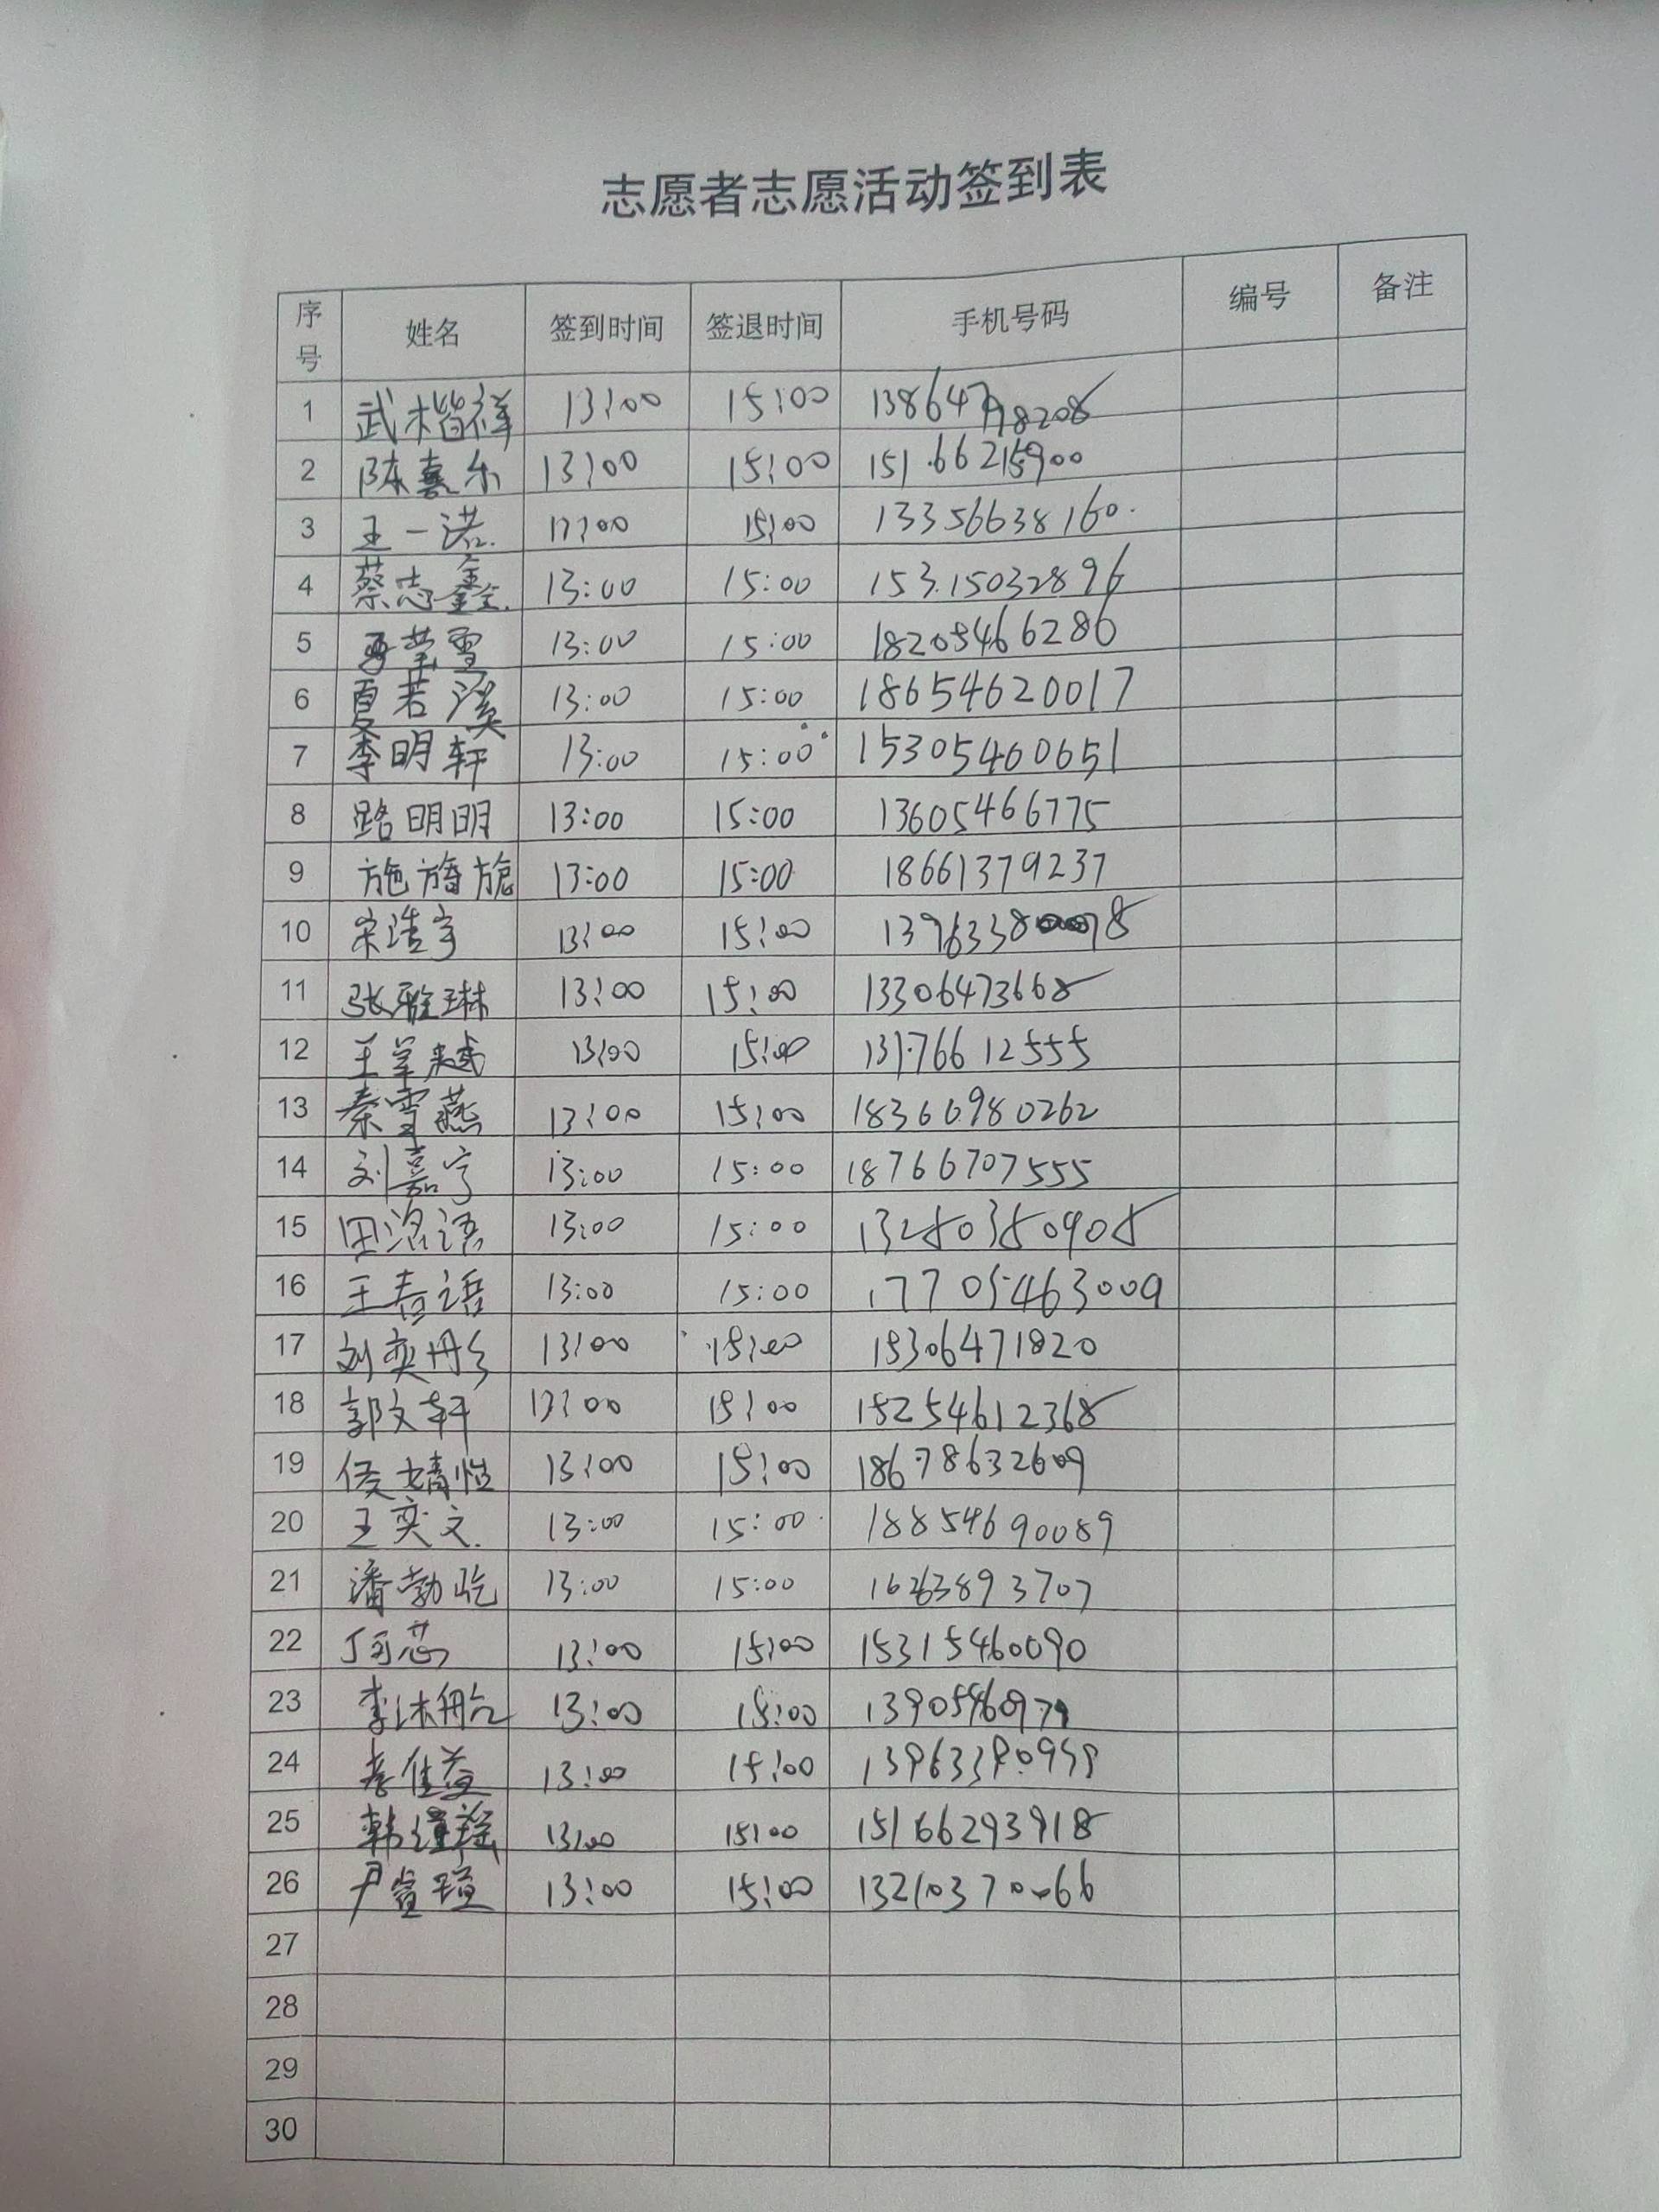 志愿者志愿活动签到表
序号 姓名 签到时间 签退时间 手机号码 编号 备注
1 武楷祥 13:00 15:00
2 陈熹乐 13:00 15:00
3 王一诺 13:00 15:00 13356638160
4 蔡志鑫 13:00 15:00 15315032896
5 13:00 15:00 18205466286
6 夏若溪 13:00 15:00 18654620017
7 李明轩 13:00 15:00 15305460651
8 路明明 13:00 15:00 13605466775
9 施旖旎 13:00 15:00 18661379237
10 宋浩宇 13:00 15:00
11 张雅琳 13:00 15:00 13306473668
12 13:00 15:00 13176612555
13 秦雪燕 13:00 15:00 18366980262
14 刘嘉宁 13:00 15:00 18766707555
15 田洺语 13:00 15:00 13280380908
16 王春语 13:00 15:00 17705463009
17 刘奕彤 13:00 15:00 15306471820
18 郭文轩 13:00 15:00 15254612368
19 侯婧怡 13:00 15:00 18678632609
20 王奕文 13:00 15:00 18854690089
21 潘勃屹 13:00 15:00
22 丁可芯 13:00 15:00 15315460090
23 13:00 15:00
24 13:00 15:00
25 13:00 15:00 15166293918
26 尹萱瑄 13:00 15:00 13210370066
27
28
29
30